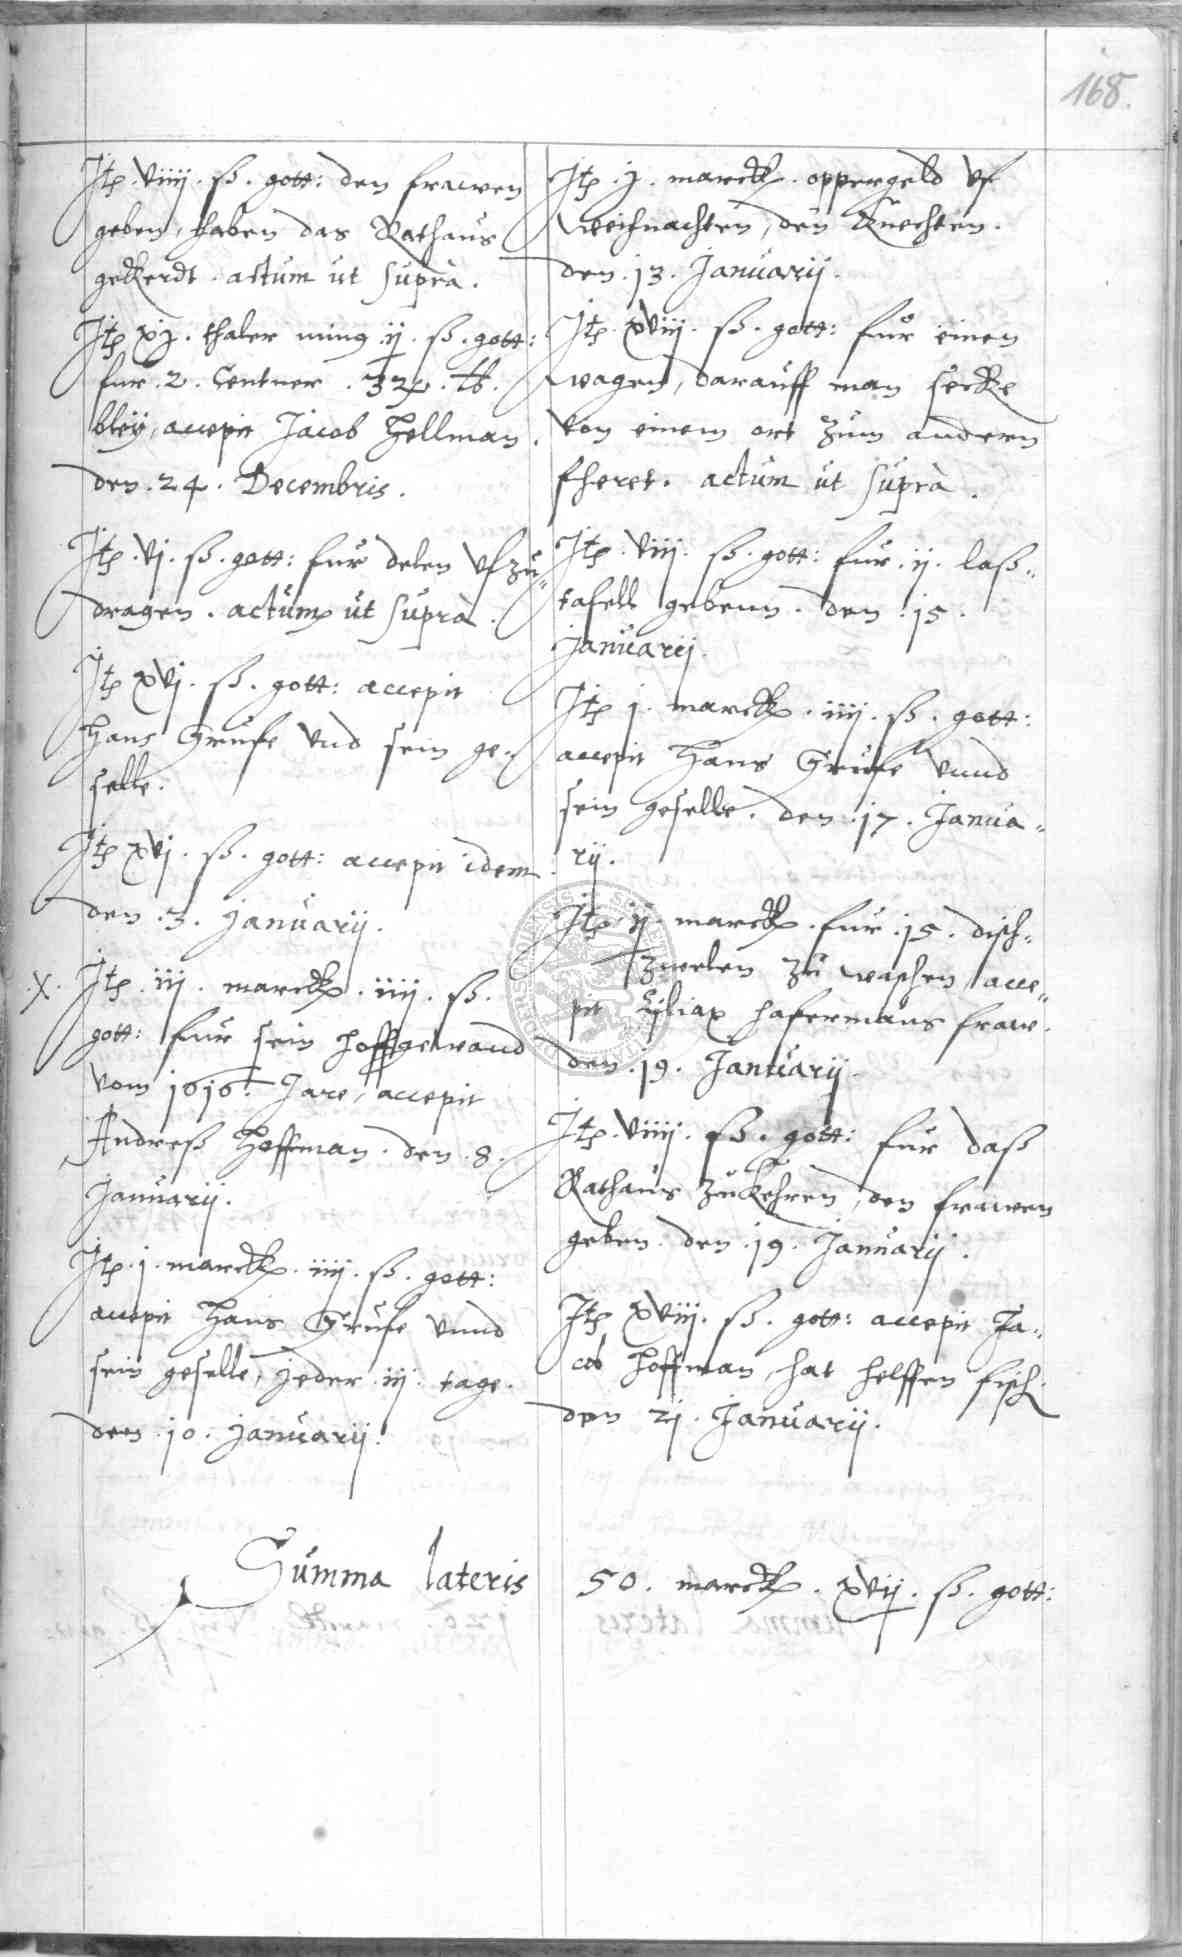 168.
Itp. viiij. ß. gott: den frawen
geben, haben das Rathaus
gekerdt. actum ut suprà.
Itp xj. thaler ming ij. ß. gott:
fur. 2. Centner. 32. lb.
bleÿ, accepit Jacob Hellman.
den. 24. Decembris.
Itp. vj. ß. gott: fur delen vf zu"
dragen. actum ut suprà.
Itp xvj. ß. gott: accepit
Hans Grufe vnd sein ge.
selle.
Itp xvj. ß. gott: accepit idem
den. 3. Januarij.
.X. Itp. iij. marck. iiij. ß.
gott: fur sein hoffgewand
vom 1616. Jare, accepit
Andreß Hoffman. den. 8.
Januarij.
Itp. j. marck. iiij. ß. gott:
accepit Hans Grufe vnnd
sein geselle, jeder. iij. tage.
den. 10. Januarij.
Itp. j. marck. oppergeld vf
weihnachten, den Knechten.
den. 13. Januarij.
Itp. xviij. ß. gott: fur einen
wagen, darauff man secke
von einem ort zum andern
fheret. actum ut suprà.
Itp. viij. ß. gott: fur. ij. laß"
tafell gebenn. den. 15.
Januarij.
Itp j. marck. iiij. ß. gott:
accepit Hans Grufe vnnd
sein geselle. den. 17. Janua"
rij.
Itp. ij. marck. fur. 15. disch"
zwelen zu waschen acce"
pit Ziliax hafermans fraw.
den. 19. Januarij.
Itp. viiij. ß. gott: fur daß
Rathaus zukehren, den frawen
geben. den. 19. Januarij.
Itp xviij. ß. gott: accepit Ja"
cob Hoffman, hat helffen fisch.
den 21. Januarij.
Summa lateris 50. marck. xvij. ß. gott: